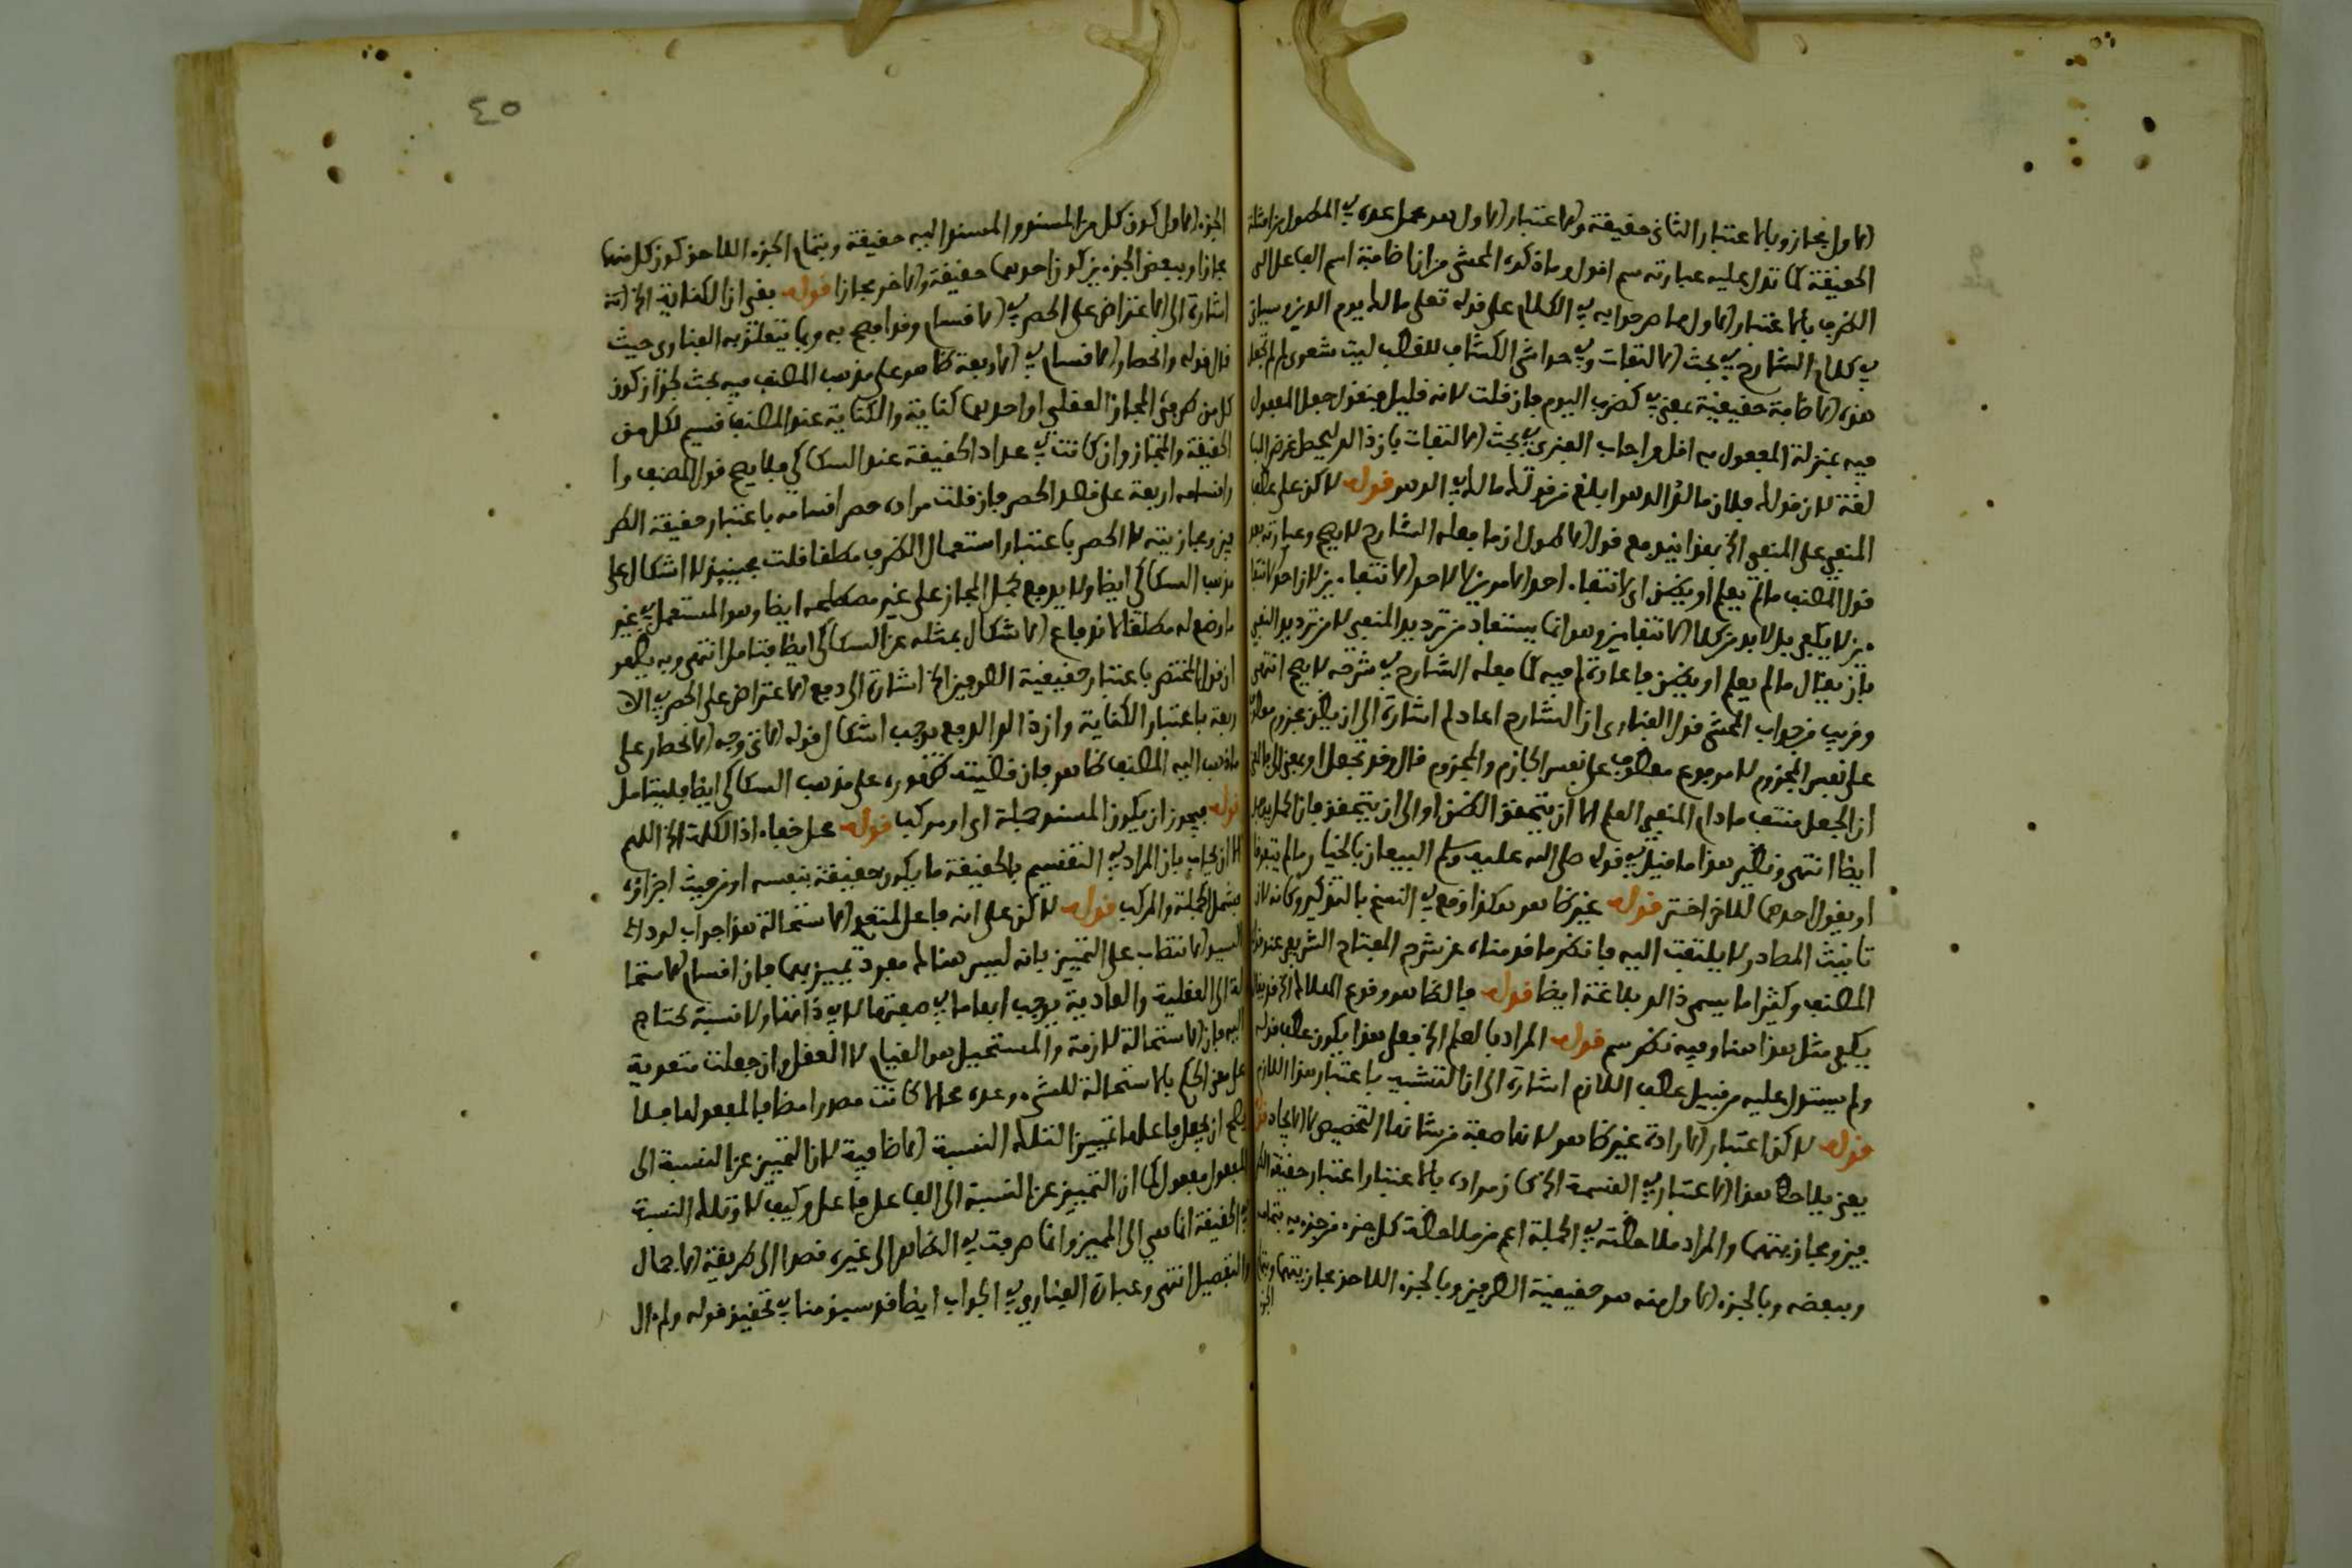 الاول مجاز وبالاعتبار الثانى حقيقة والاعتبار الاول هو محمل عده في المطول من امثلة
الحقيقة كما تدل عليه عبارته سم اقول وما ذكره المحشى من ان اضافة اسم الفاعل الى
الظرف بالاعتبار الاول مما صرحوا به في الكلام على قوله تعلى مالك يوم الدين وسياتى
في كلام الشارح في بحث الالتفات وفي حواشى الكشاف للقطب ليت شعرى لم لم تجعل
هذه الاضافة حقيقية بمعنى في كضرب اليوم فان قلت لانه قليل فنقول جعل المفعول
فيه بمنزلة المفعول به اقل واجاب الفنرى في بحث الالتفات بان ذلك ليحصل غرض المبا
لغة لان قولك فلان مالك الدهر ابلغ من قولك مالك في الدهر قوله لاكن على عطف
المنفى على المنفى الخ هذا ينبو مع قول الاطول ان ما فعله الشارح لا يصح وعبارته بعد
قول المصنف ما لم يعلم او يظن اى لانتفاء احد الامرين لا لاحد الانتفاءين لان احد الانتفا
ءين لا يكفى بل لابد من كلا الانتفاءين وهو انما يستفاد من ترديد المنفى لا من ترديد النفى
بان يقال ما لم يعلم او يظن فاعادة لم فيه كما فعله الشارح في شرحه لا يصح انتهى
وقريب من جواب المحشى قول الفنارى ان الشارح اعاد لم اشارة الى ان يظن مجزوم معطوف
على نفس المجزوم لا مرفوع معطوف على نفس الجازم والمجزوم قال وقد تجعل او بمعنى الى بمعنى
ان الجعل منتف ما دام المنفى العلم الا ان يتحقق الظن او الى ان يتحقق فان الحمل
ايضا انتهى ونظير هذا ما قيل في قوله صلى الله عليه وسلم البيعان بالخيار ما لم يتفرقا
او يقول احدهما للاخر اختر قوله غير ظاهر هكذا وقع في النسخ بالتذكير وكانه لان
تانيث المصادر لا يلتفت اليه فانظر ما قدمناه عن شرح المفتاح الشريف عند قول
المصنف وكثيرا ما يسمى ذلك بلاغة ايضا قوله فالظاهر وقوع
يكفى مثل هذا هنا وفيه نظر سم قوله المراد بالعلم الخ فعلى هذا يكون عطف قوله
ولم يستدل عليه من قبيل عطف اللازم اشارة الى ان التشبيه باعتبار هذا اللازم
قوله لاكن اعتبار الارادة غير ظاهر لانها صفة من شانها التخصيص لا الايجاد قوله
يعنى بملاحظة هذا الاعتبار في القسمة الخ كان مراده بالاعتبار اعتبار حقيقة الطر
فين ومجازيتهما والمراد ملاحظته في الجملة اعم من ملاحظة كل جزء من جزءيه بتمامه
وببعضه وبالجزء الاول منه هو حقيقية الطرفين وبالجزء اللاحق مجازيتهما وبتمام
الجزء
٤٥
الجزء الاول كون كل من المسند والمسند اليه حقيقة وبتمام الجزء اللاحق كون كل منهما
مجازا وببعض الجزءين كون احدهما حقيقة والاخر مجازا قوله بقى ان الكناية الخ انه
اشارة الى الاعتراض على الحصر في الاقسام وقد افصح به وبما يتعلق به الفنارى حيث
قال قوله وانحصار الاقسام في الاربعة ظاهر على مذهب المصنف فيه بحث لجواز كون
كل من طرفى المجاز العقلى او احدهما كناية والكناية عند المصنف قسيم لكل من
الحقيقة والمجاز وان كانت في عداد الحقيقة عند السكاكى فلا يصح قول المصنف وا
واقسامه اربعة على قصد الحصر فان قلت مراده حصر اقسامه باعتبار حقيقة الطر
فين ومجازيته لا الحصر باعتبار استعمال الطرف مطلقا قلت فحينئذ لا اشكال على
مذهب السكاكى ايضا ولا يدفع بحمل المجاز على غير مصطلحه ايضا وهو المستعمل في غير
ما وضع له مطلقا لاندفاع الاشكال بمثله عن السكاكى ايضا فتامل انتهى وبه يظهر
ان قول المختصر باعتبار حقيقية الطرفين الخ اشارة الى دفع الاعتراض على الحصر في الا
ربعة باعتبار الكناية وان ذلك الدفع يوجب اشكال قوله الاتى وجه الانحصار على
ما ذهب اليه المصنف ظاهر فان قضيته ظهوره على مذهب السكاكى ايضا فليتامل
قوله فيجوز ان يكون المسند جملة اى او مركبا قوله محل خفاء اذ الكلمة الخ اللهم
الا ان يجاب بان المراد في التقسيم بالحقيقة ما يكون حقيقة بنفسه او من حيث اجزاؤه
فيشمل الجملة والمركب قوله لاكن على انه فاعل لمتعد الاستحالة هذا جواب لرد
السيد الانتصاب على التمييز بانه ليس هنالك مفردا تمييز بهما فان اقسام الاستحا
لة الى العقلية والعادية يوجب ابهاما في صفتها لا في ذاتها ولا نسبة تحتاج
اليه فان الاستحالة لازمة والمستحيل هو القيام لا العقل وان جعلت متعدية
على معنى الحكم بالاستحالة للشيء وعده محالا كانت مصدرا مضافا للمفعول فلا
يصح ان يجعل فاعلها تمييزا لتلك النسبة الاضافية لان التمييز عن النسبة الى
المفعول مفعول كما ان التمييز عن النسبة الى الفاعل فاعل وكيف لا وتلك النسبة
في الحقيقة انما هي الى المميز وانما صرفت في الظاهر الى غيره قصدا الى طريقة الاجمال
والتفصيل انتهى وعبارة الفنارى في الجواب ايضا قد سبق منا في تحقيق قوله ولم ال